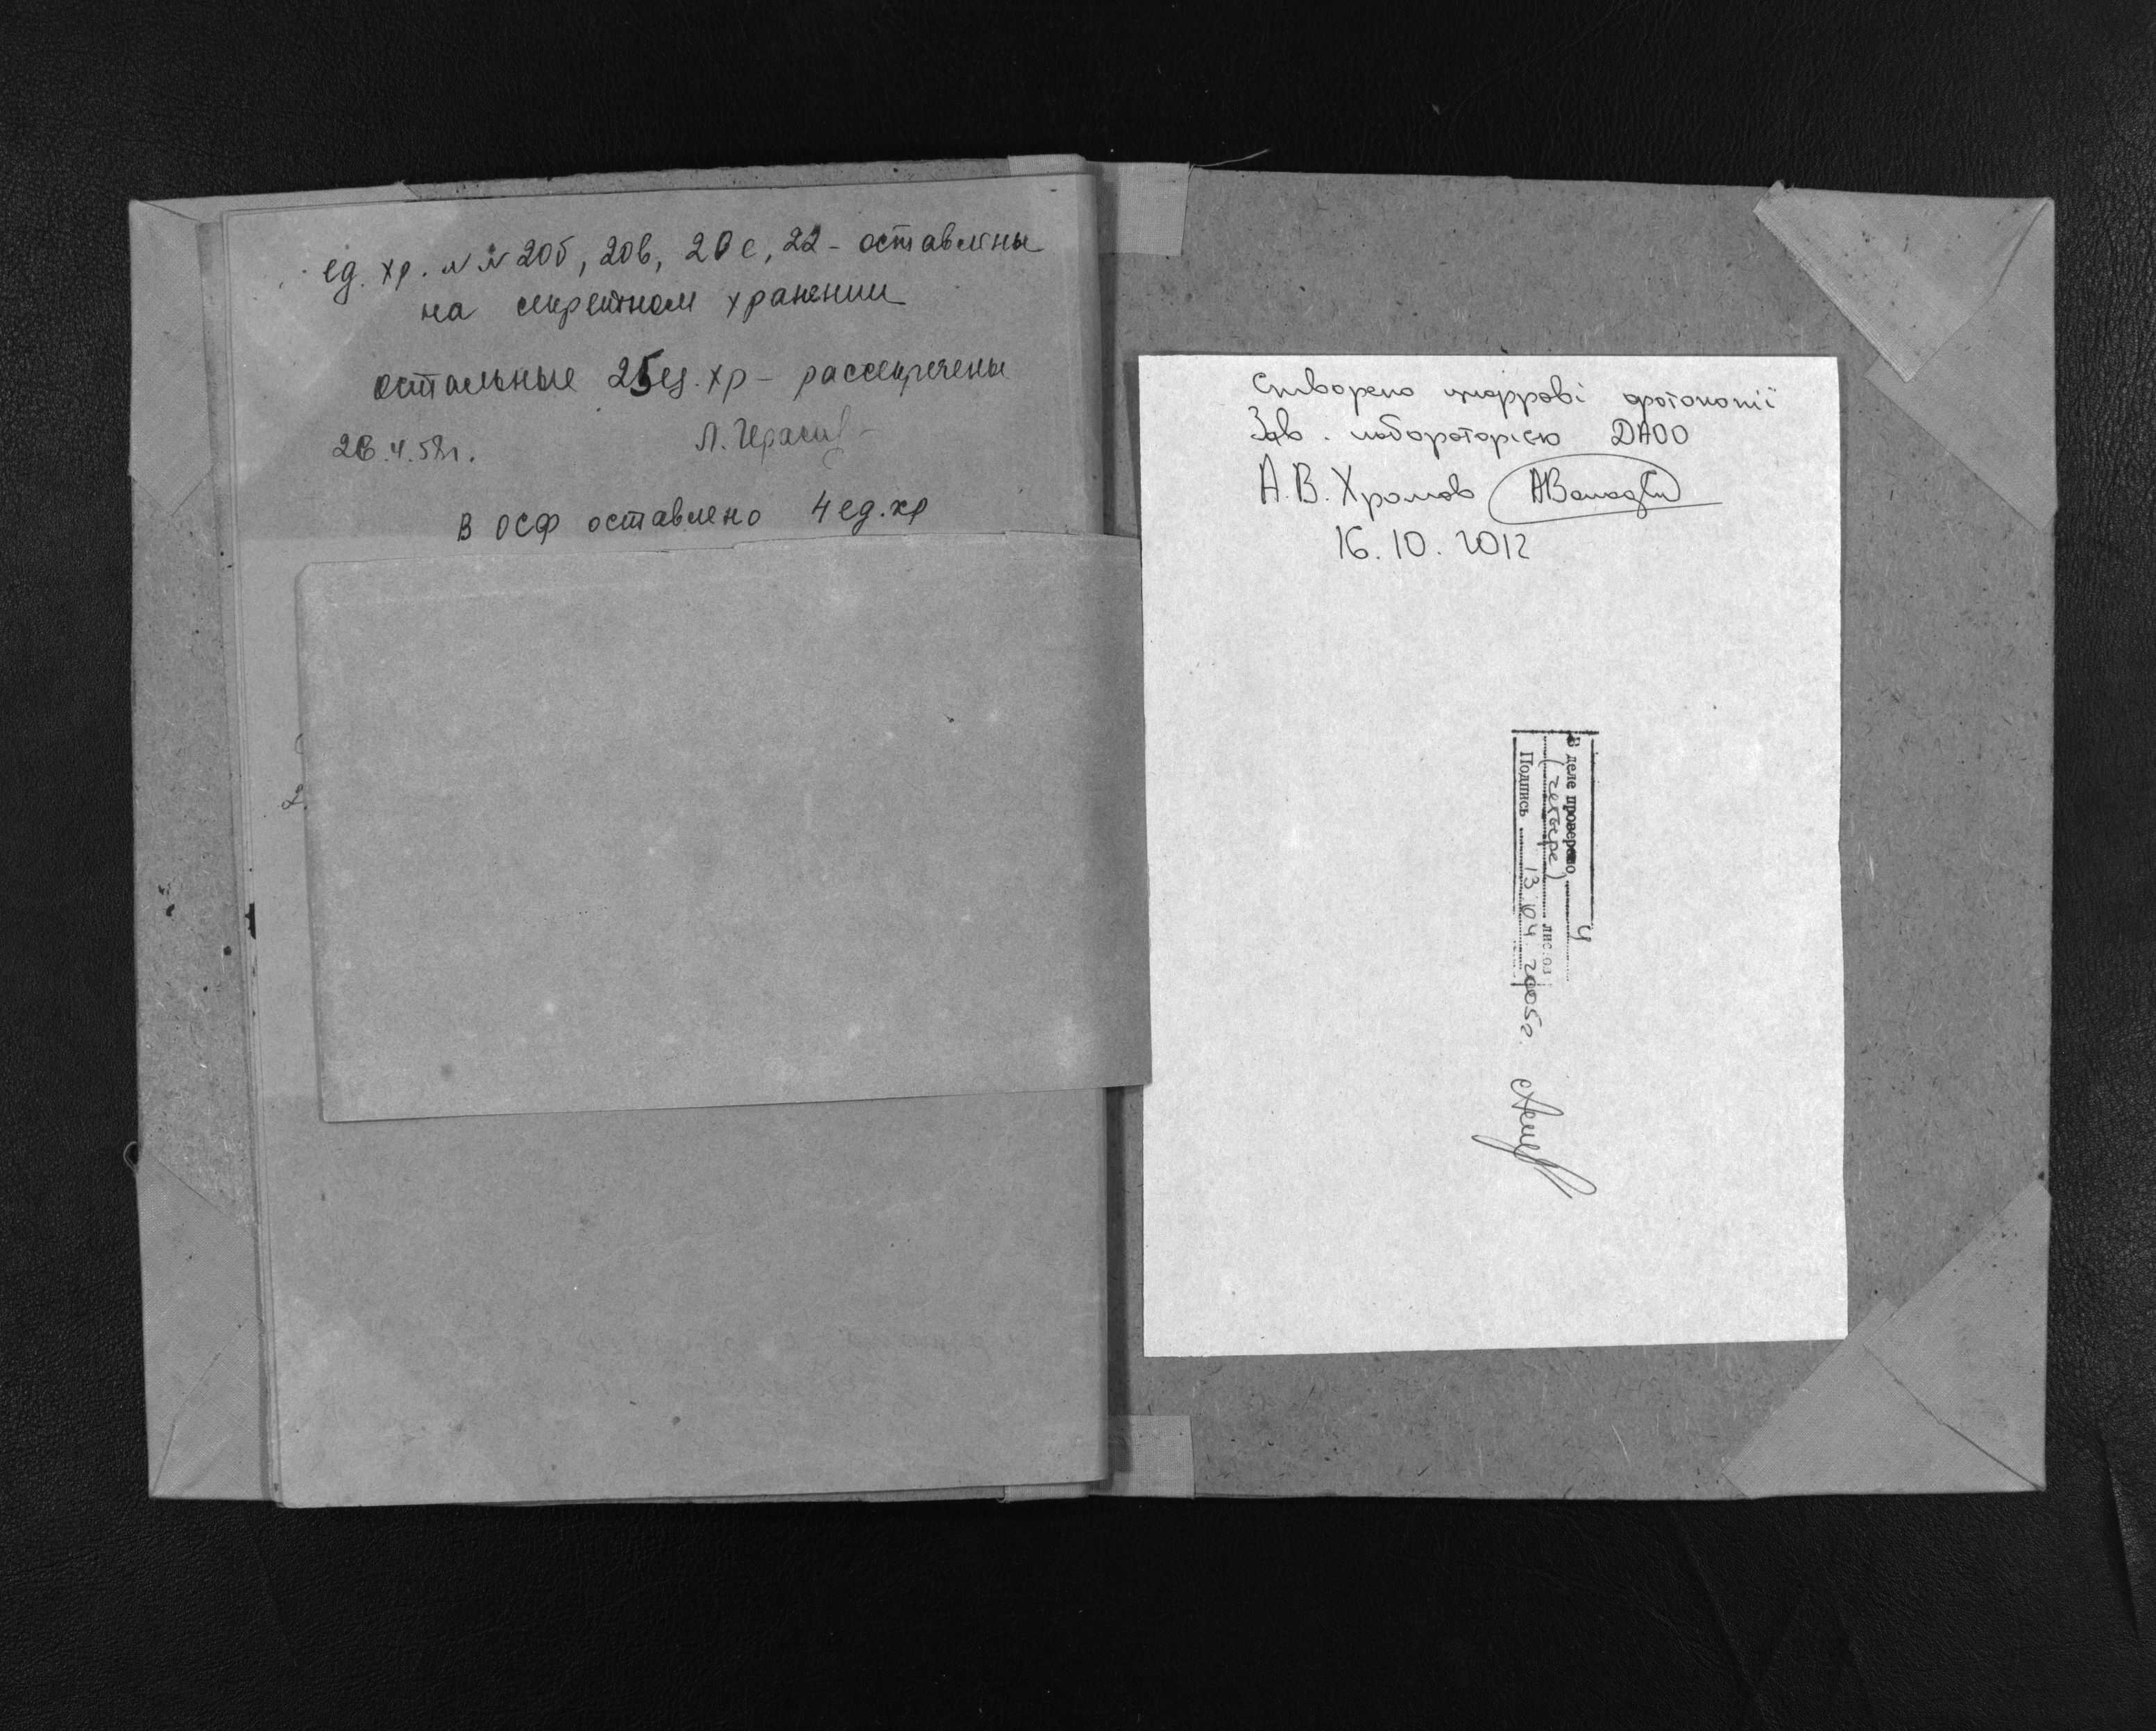 ед. хр. №№ 20б, 20в, 20е, 22 - оставлены
на секретном хранении
остальные 25 ед. хр - рассекречены
26.4.58г.
В ОСФ оставлено 4 ед. хр
2.
Створено цифрові фотокопії
Зав. лабораторією ДАОО
А.В. Хромов
16.10.2012
В деле проверено 4
(четыре) листов
Подпись 13.04.2005г.